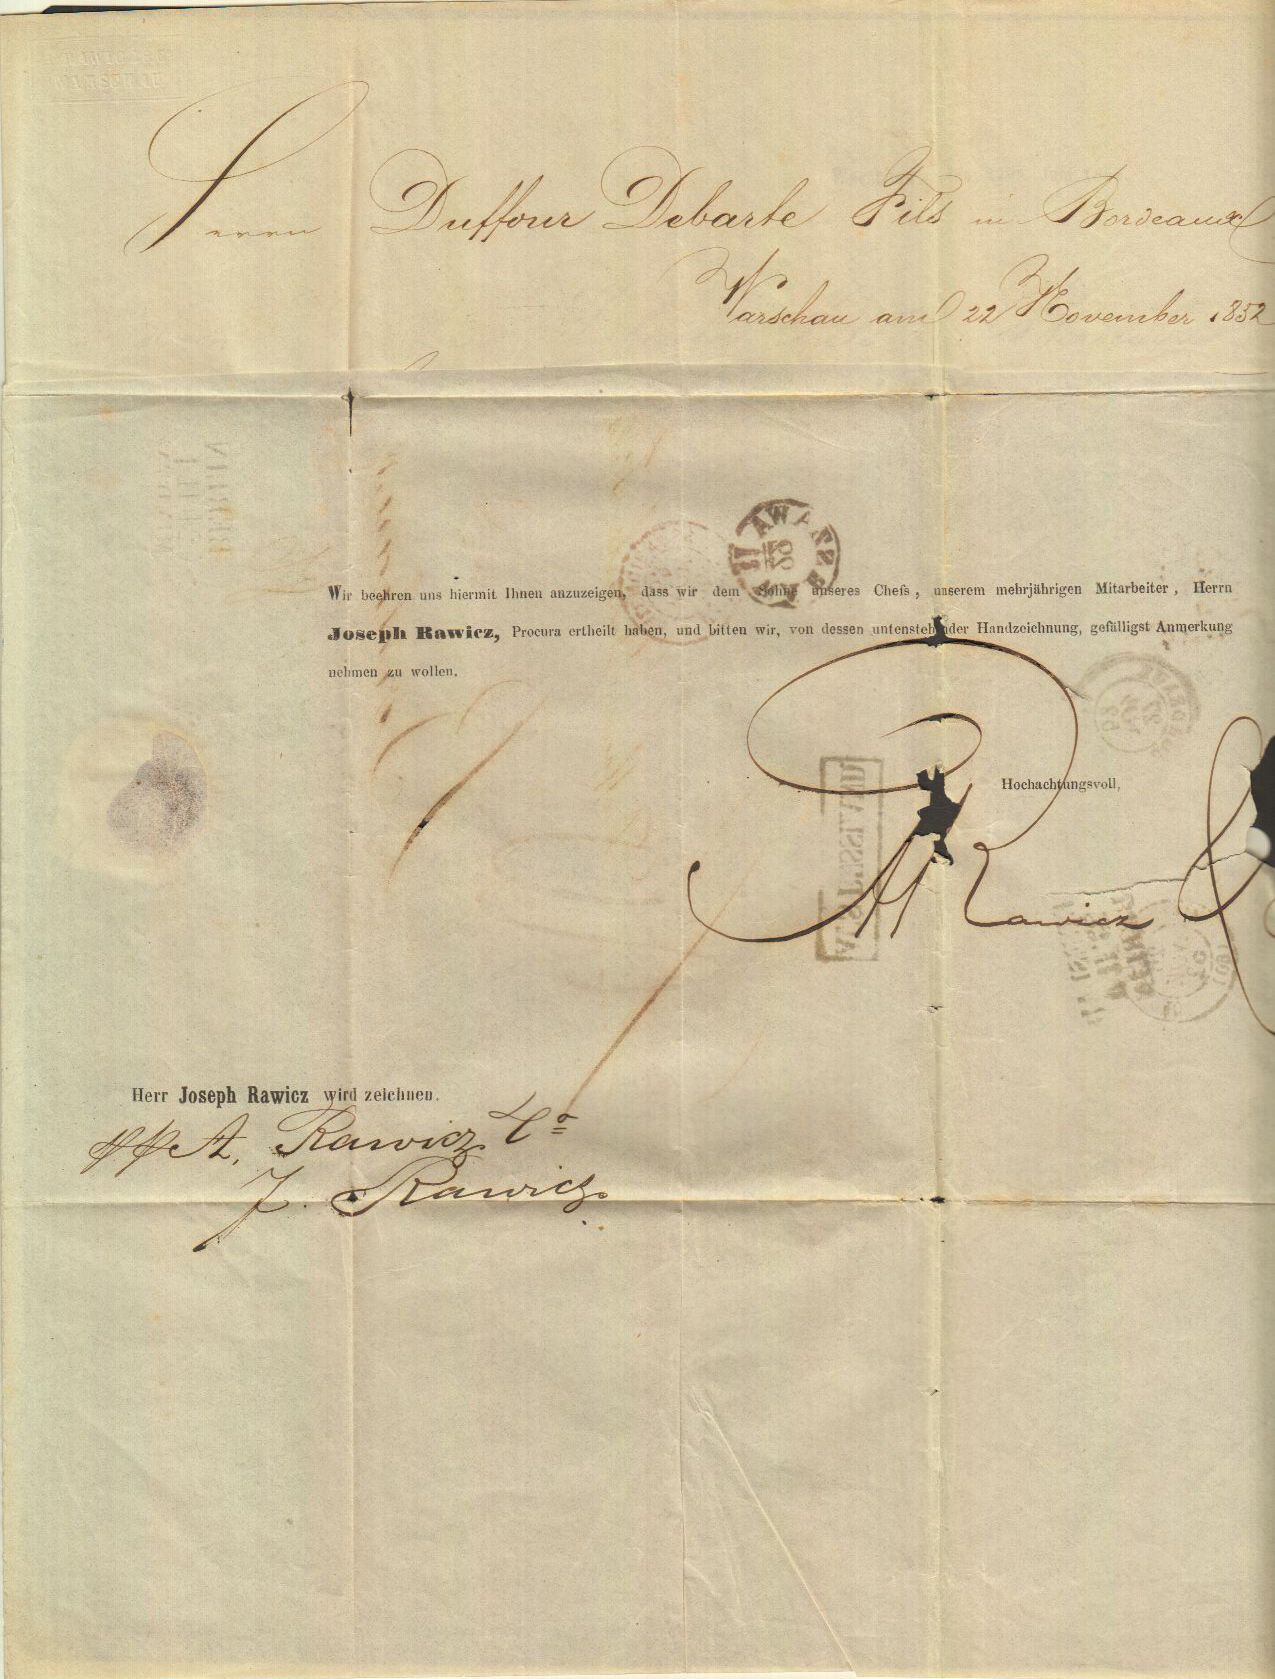 RAWICZ
WARSCHAU
Herrn Duffour Debarte Fils in Bordeaux
Warschau am 22 November 1852
Wir beehren uns hiermit Ihnen anzuzeigen, dass wir dem Sohne unseres Chefs, unserem mehrjährigen Mitarbeiter, Herrn
Joseph Rawicz, Procura ertheilt haben, und bitten wir, von dessen untenstehender Handzeichnung, gefälligst Anmerkung
nehmen zu wollen.
Hochachtungsvoll,
A Rawicz
Herr Joseph Rawicz wird zeichnen.
ppA. Rawicz Co
J. Rawicz